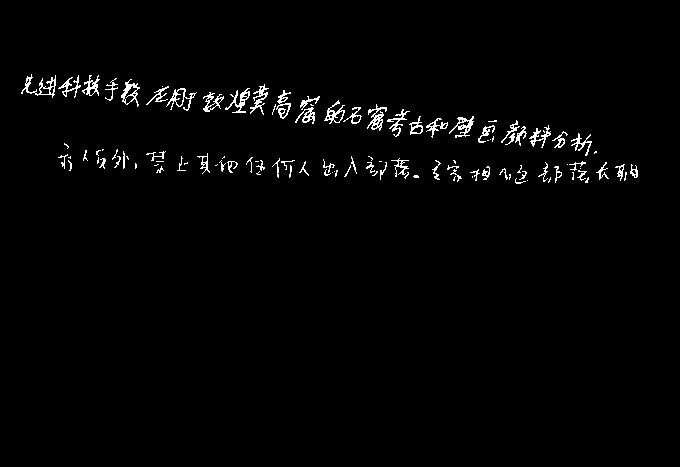 先进科技手段应用于敦煌莫高窟的石窟考古和壁画颜料分析.
人员外,禁止其他任何人出入部落。专家担心这部落长期